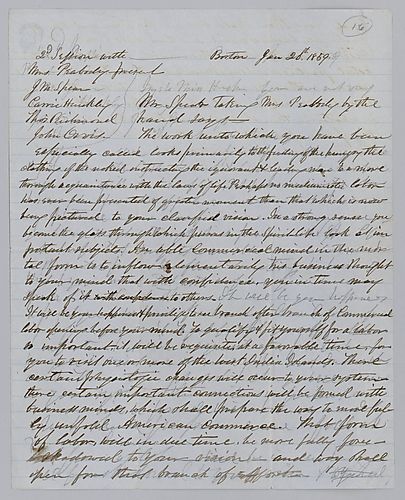 16
2d Session with Boston Jan 20th 1859.
Mrs Peabody present
J M Spear
Carrie Hinkley
Thos Richmond
John Orvis
Mr Spear Taking Mrs Peabody by the
hand says—
The work unto which you have been
especially called looks primarily to the feeding of the hungry the
clothing of the naked instructing the ignorant & leading man & woman
through acquaintance with the laws of life. Perhaps no mediumistic labor
has ever been presented of greater moment than that which is now
being pictured to your clarified vision. In a strong sense you
become the glass through which persons in the Spirit life look at im
portant subjects. An able Commercial mind in the mor
tal form is to inflow circuitously his business thought
to your mind that with confidence you in time may
speak of it with confidence to others.
It will be your happiness & privilege to see branch after branch of Commercial
labor opening before your mind. To qualify & fit yourself for a labor
so important it will be requisite at a favorable time, for
you to visit one or more of the West India Islands. There
certain Physiologic changes will occur to your system
there certain important connections will be formed with
business minds, which shall prepare the way to more ful
ly unfold American Commerce. That form
of labor will in due time be more fully fore
shadowed to your vision and way shall
open for that branch of effort